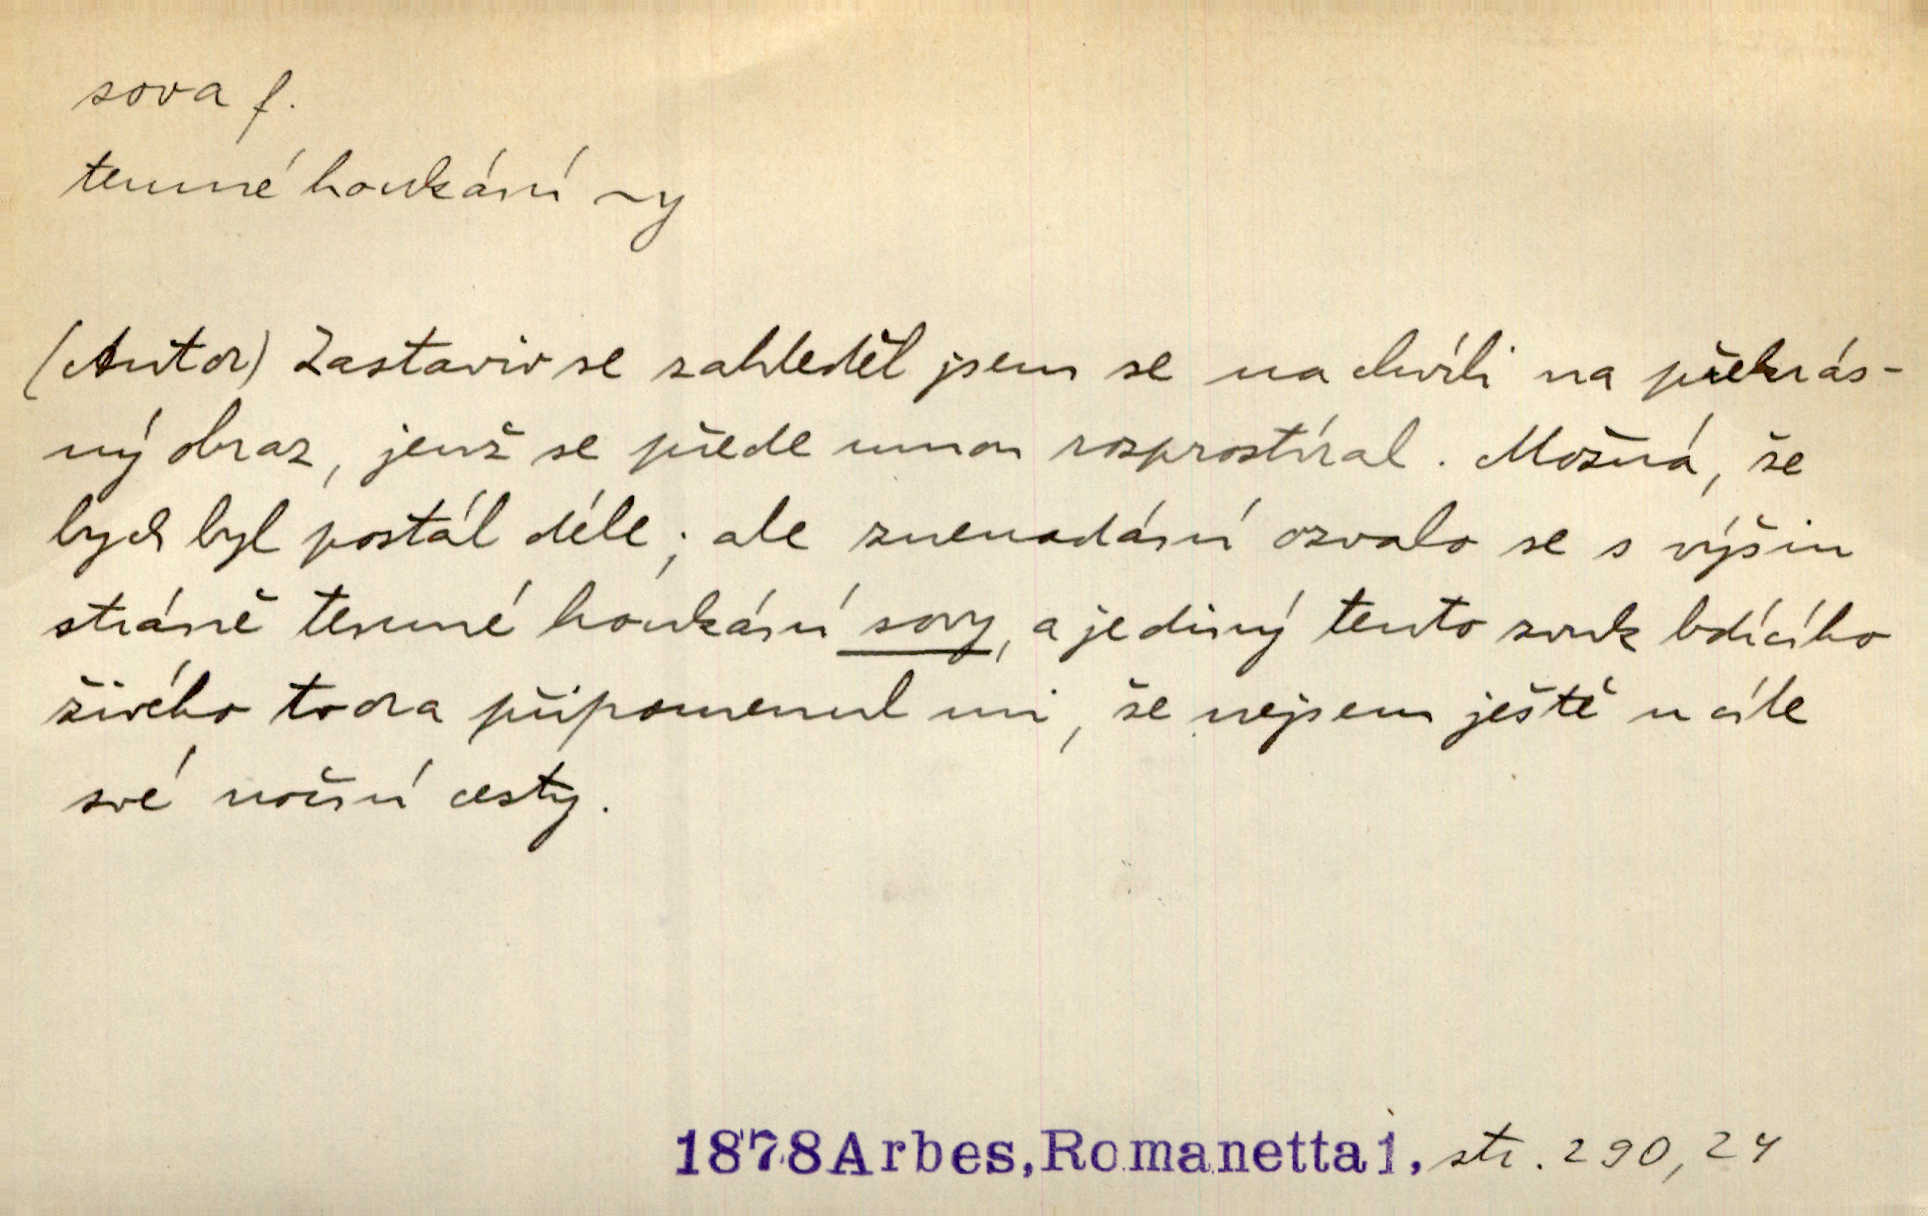 sova f.
temné houkání ~y
(Autor) Zastaviv se zahleděl jsem se na chvíli na překrás-
ný obraz, jenž se přede mnou rozprostíral. Možná, že
bych byl postál déle; ale znenadání ozvalo se s výšin
stráně temné houkání sovy, a jediný tento zvuk bdícího
živého tvora připomenul mi, že nejsem ještě u cíle
své noční cesty.
1878 Arbes, Romanetta 1, str. 290, 24